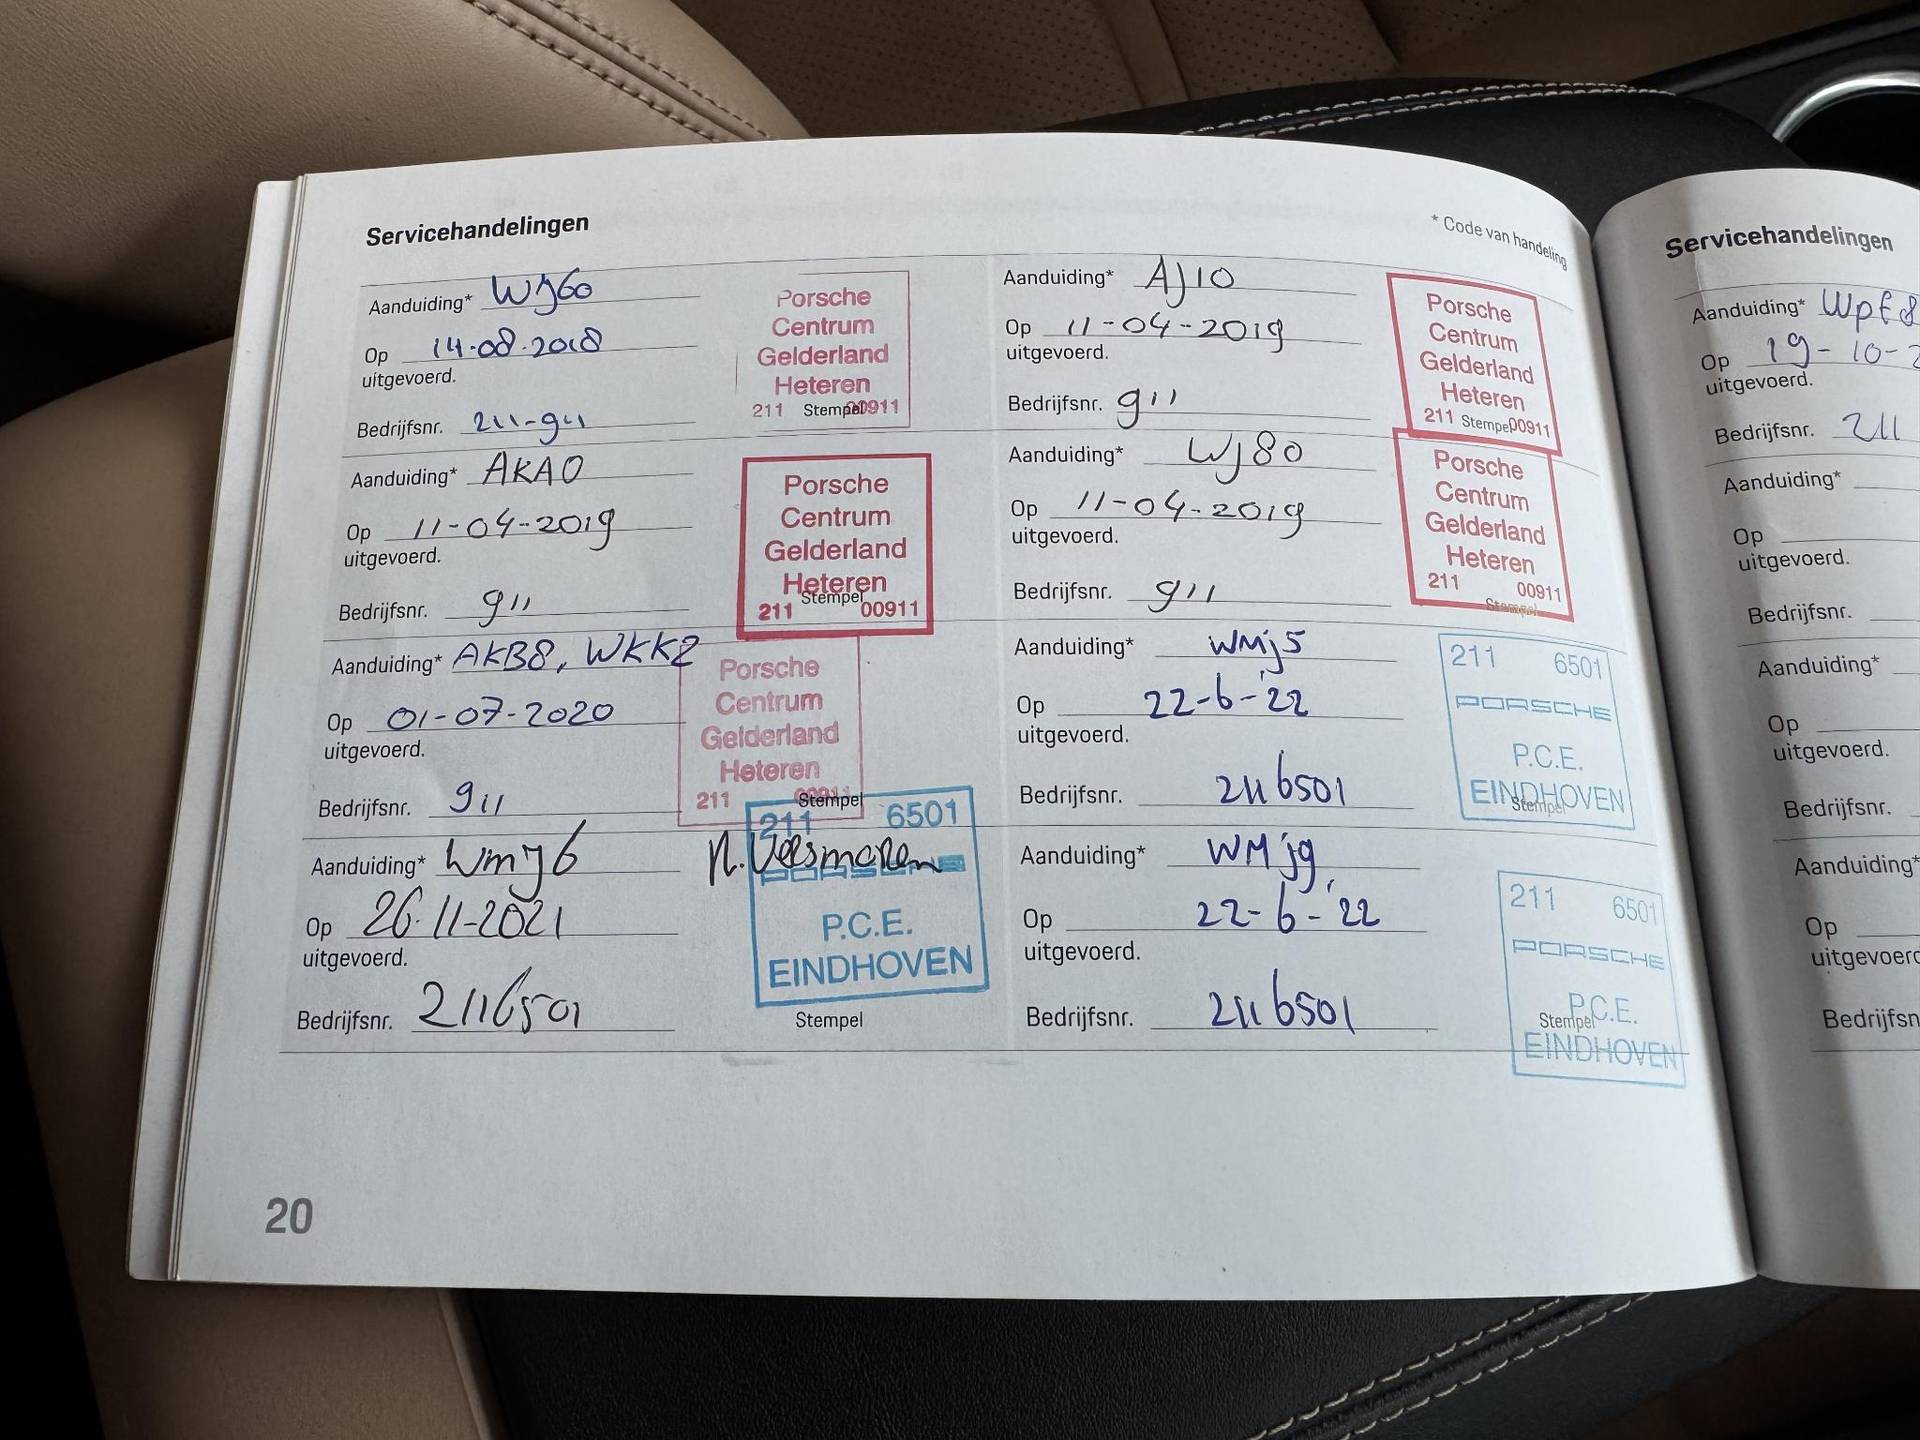 Servicehandelingen
* Code van handeling
Aanduiding* WJ60
Op 14-08-2018
uitgevoerd.
Bedrijfsnr. 211-911
Porsche
Centrum
Gelderland
Heteren
211 Stempel 00911
Aanduiding* AJ10
Op 11-04-2019
uitgevoerd.
Bedrijfsnr. 911
Porsche
Centrum
Gelderland
Heteren
211 Stempel 00911
Aanduiding* AKA0
Op 11-04-2019
uitgevoerd.
Bedrijfsnr. 911
Porsche
Centrum
Gelderland
Heteren
Stempel
211 00911
Aanduiding* WJ80
Op 11-04-2019
uitgevoerd.
Bedrijfsnr. 911
Porsche
Centrum
Gelderland
Heteren
211 00911
Stempel
Aanduiding* AKB8, WKK2
Op 01-07-2020
uitgevoerd.
Bedrijfsnr. 911
Porsche
Centrum
Gelderland
Heteren
211 00911
Stempel
Aanduiding* WMj5
Op 22-6-'22
uitgevoerd.
Bedrijfsnr. 2116501
211 6501
PORSCHE
P.C.E.
EINDHOVEN
Stempel
Aanduiding* WmJ6
Op 26-11-2021
uitgevoerd.
Bedrijfsnr. 2116501
211 6501
PORSCHE
P.C.E.
EINDHOVEN
Stempel
Aanduiding* WMj9
Op 22-6-'22
uitgevoerd.
Bedrijfsnr. 2116501
211 6501
PORSCHE
P.C.E.
Stempel
EINDHOVEN
20
Servicehandelingen
Aanduiding* WPF8
Op 19-10-2
uitgevoerd.
Bedrijfsnr. 211
Aanduiding*
Op
uitgevoerd.
Bedrijfsnr.
Aanduiding*
Op
uitgevoerd.
Bedrijfsnr.
Aanduiding*
Op
uitgevoerd
Bedrijfsn